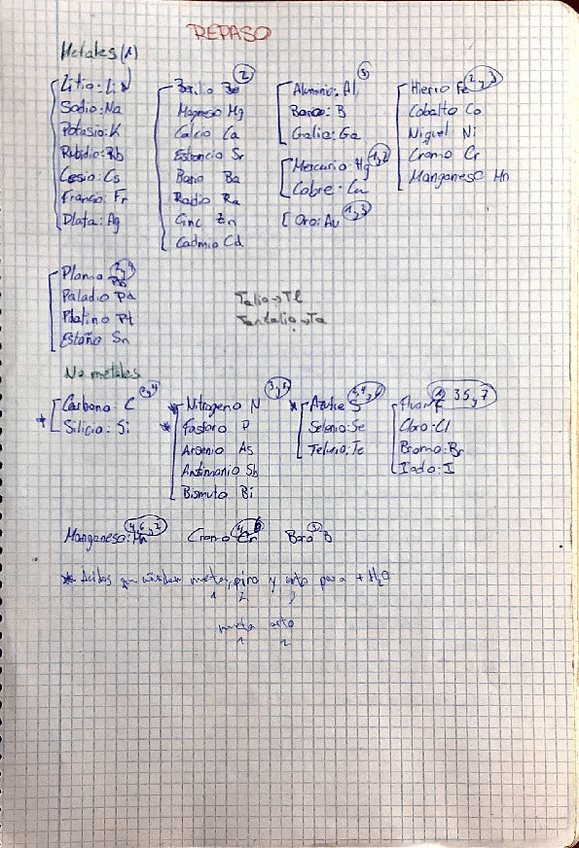 REPASO
Metales (1)
Litio: Li
Sodio: Na
Potasio: K
Rubidio: Rb
Cesio: Cs
Francio: Fr
Plata: Ag
2
Berilio Be
Magnesio Mg
Calcio Ca
Estroncio Sr
Bario Ba
Radio Ra
Cinc Zn
Cadmio Cd
3
Aluminio: Al
Boro: B
Galio: Ga
Mercurio: Hg 1,2
Cobre: Cu
Oro: Au 1,3
Hierro Fe 2 y 3
Cobalto Co
Niquel Ni
Cromo Cr
Manganeso Mn
Plomo Pb 2,4
Paladio Pd
Platino Pt
Estaño Sn
Talio → Tl
Tantalio → Ta
No metales
Carbono: C 2,4
* Silicio: Si
* Nitrogeno N 3,5
* Fosforo P
Arsenio As
Antimonio Sb
Bismuto Bi
* Azufre S 2,4,6
Selenio: Se
Teluro: Te
Fluor F 1 3 5 y 7
Cloro: Cl
Bromo: Br
Iodo: I
Manganeso: Mn
Cromo Cr
Boro B 3
* Acidos que meta, piro y orto para + H₂O
1 2 3
meta orto
1 2